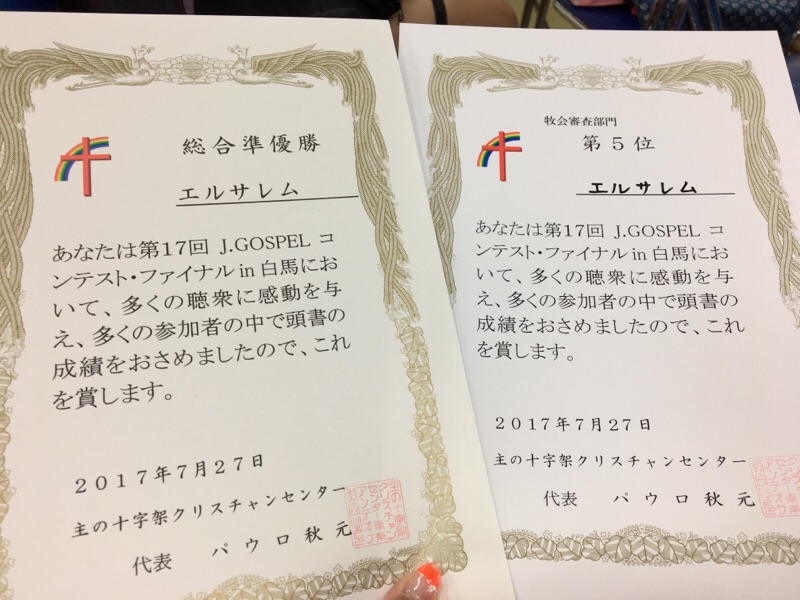 総合準優勝
エルサレム
あなたは第17回 J.GOSPEL コ
ンテスト・ファイナル in 白馬にお
いて、多くの聴衆に感動を与
え、多くの参加者の中で頭書の
成績をおさめましたので、これ
を賞します。
2017年7月27日
主の十字架クリスチャンセンター
代表 パウロ秋元
牧会審査部門
第5位
エルサレム
あなたは第17回 J.GOSPEL コ
ンテスト・ファイナル in 白馬にお
いて、多くの聴衆に感動を与
え、多くの参加者の中で頭書の
成績をおさめましたので、これ
を賞します。
2017年7月27日
主の十字架クリスチャンセンター
代表 パウロ秋元